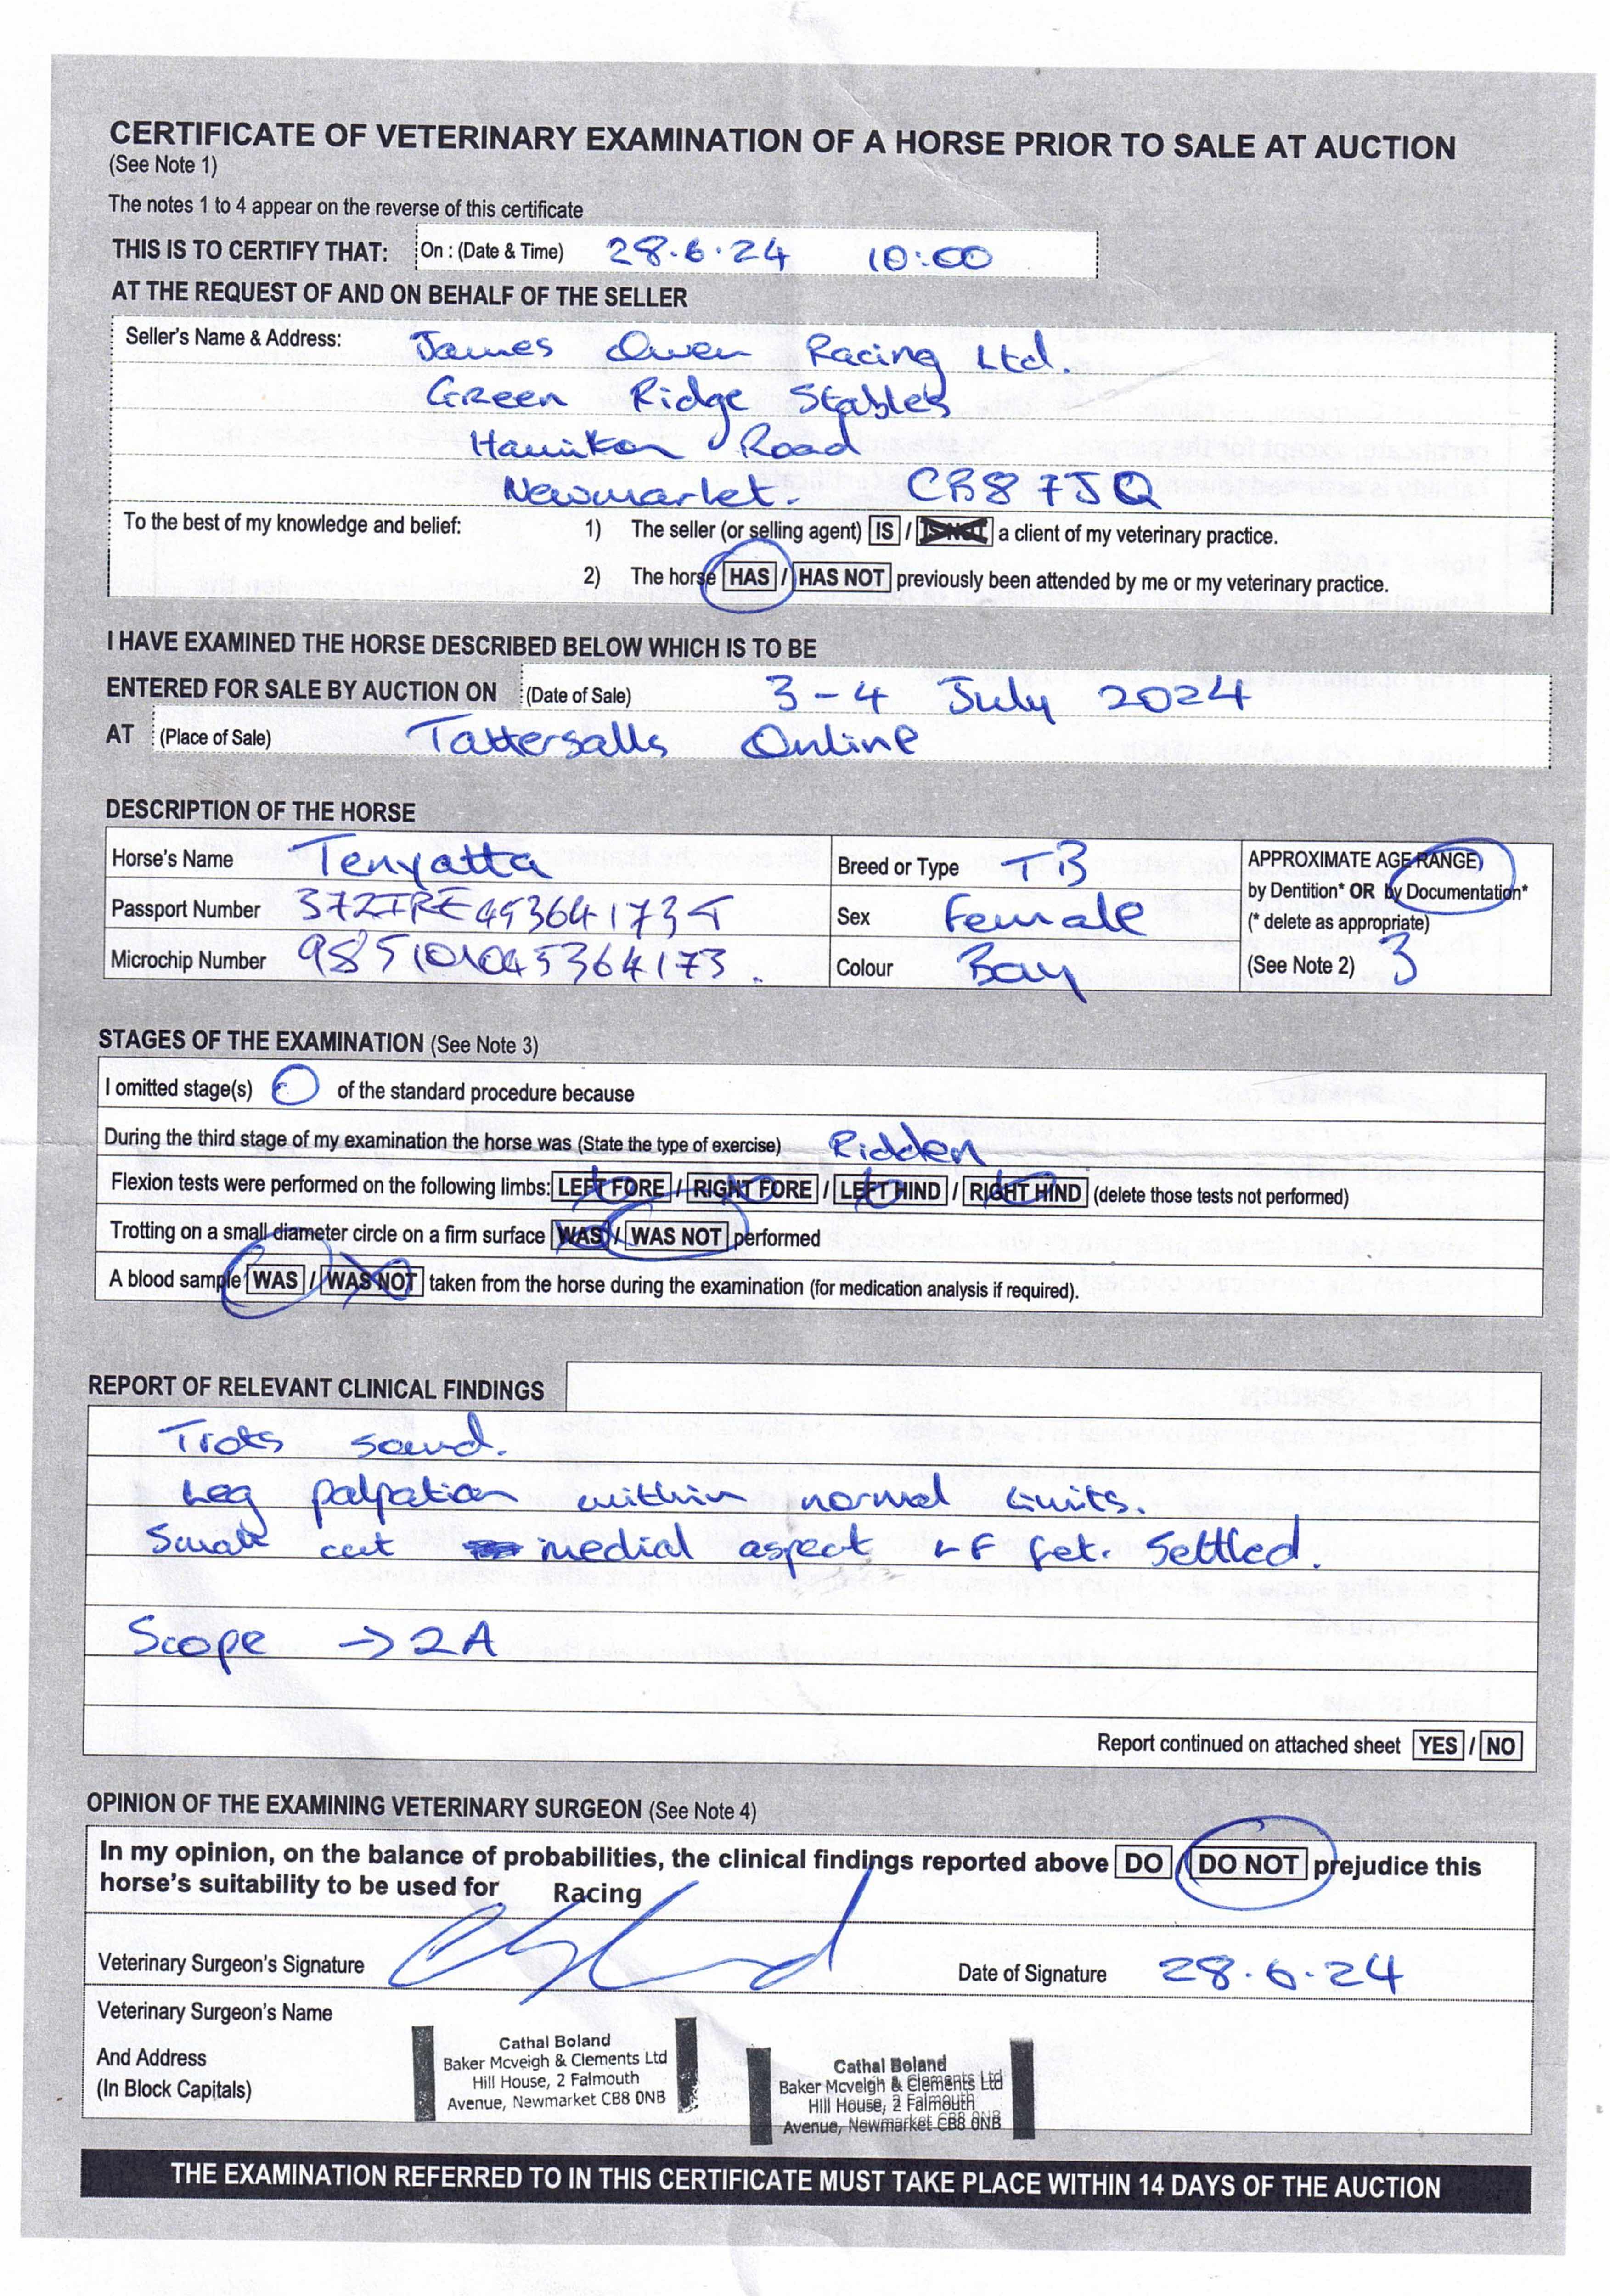 CERTIFICATE OF VETERINARY EXAMINATION OF A HORSE PRIOR TO SALE AT AUCTION
(See Note 1)
The notes 1 to 4 appear on the reverse of this certificate
THIS IS TO CERTIFY THAT: On : (Date & Time) 28.6.24 10:00
AT THE REQUEST OF AND ON BEHALF OF THE SELLER
Seller's Name & Address: James Owen Racing Ltd.
Green Ridge Stables
Hamilton Road
Newmarket. CB8 7JQ
To the best of my knowledge and belief: 1) The seller (or selling agent) IS / IS NOT a client of my veterinary practice.
2) The horse HAS / HAS NOT previously been attended by me or my veterinary practice.
I HAVE EXAMINED THE HORSE DESCRIBED BELOW WHICH IS TO BE
ENTERED FOR SALE BY AUCTION ON (Date of Sale) 3-4 July 2024
AT (Place of Sale) Tattersalls Online
DESCRIPTION OF THE HORSE
Horse's Name Tenyatta Breed or Type TB APPROXIMATE AGE RANGE)
by Dentition* OR by Documentation*
Passport Number Sex Female (* delete as appropriate)
Microchip Number 985101045364173. Colour Bay (See Note 2) 3
STAGES OF THE EXAMINATION (See Note 3)
I omitted stage(s) 0 of the standard procedure because
During the third stage of my examination the horse was (State the type of exercise) Ridden
Flexion tests were performed on the following limbs: LEFT FORE / RIGHT FORE / LEFT HIND / RIGHT HIND (delete those tests not performed)
Trotting on a small diameter circle on a firm surface WAS / WAS NOT performed
A blood sample WAS / WAS NOT taken from the horse during the examination (for medication analysis if required).
REPORT OF RELEVANT CLINICAL FINDINGS
Trots sound.
Leg palpation within normal limits.
Small cut medial aspect LF fet. Settled.
Scope → 2A
Report continued on attached sheet YES / NO
OPINION OF THE EXAMINING VETERINARY SURGEON (See Note 4)
In my opinion, on the balance of probabilities, the clinical findings reported above DO / DO NOT prejudice this
horse's suitability to be used for Racing
Veterinary Surgeon's Signature Date of Signature 28.6.24
Veterinary Surgeon's Name
And Address
(In Block Capitals)
Cathal Boland
Baker Mcveigh & Clements Ltd
Hill House, 2 Falmouth
Avenue, Newmarket CB8 0NB
Cathal Boland
Baker Mcveigh & Clements Ltd
Hill House, 2 Falmouth
Avenue, Newmarket CB8 0NB
THE EXAMINATION REFERRED TO IN THIS CERTIFICATE MUST TAKE PLACE WITHIN 14 DAYS OF THE AUCTION